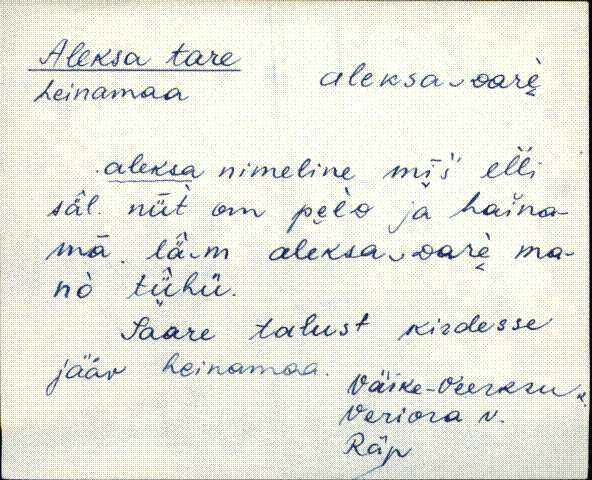 Aleksa tare
heinamaa
aleksa‿ᴅarè̬
aleksa nimeline mī̬s̀ elli
säl. nüt̀ om pe̬l̀o ja haina-
mā. lä‿m aleksa‿ᴅarè̬ ma-
nò tü̬hü.
Saare talust kirdesse
jääv heinamaa.
Väike-Veerksu k.
Veriora v.
Räp